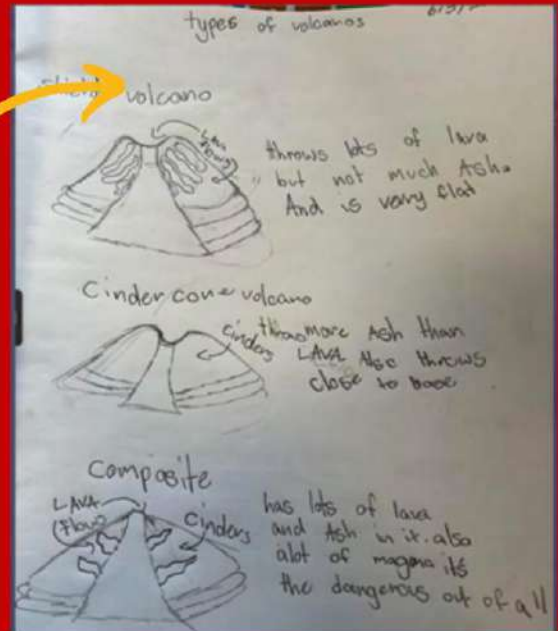 types of volcanos
Shield volcano
LAVA
throws lots of lava
but not much Ash.
And is very flat
Cinder cone volcano
cinders
throws more Ash than
LAVA Also throws
close to base
composite
LAVA
(flow)
cinders
has lots of lava
and Ash in it. also
alot of magma its
the dangerous out of all